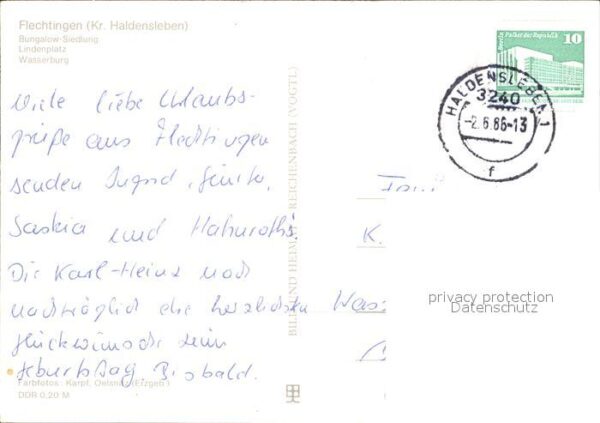 Flechtingen (Kr. Haldensleben)
Bungalow-Siedlung
Lindenplatz
Wasserburg
Viele liebe Urlaubs-
grüße aus Flechtingen
senden Ingrid, Günter,
Saskia und Hahnroths.
Dir Karl-Heinz noch
nachträglich die herzlichsten
Glückwünsche zum
Geburtstag. Bis bald.
Farbfotos: Karpf, Oelsnitz (Erzgeb.)
DDR 0,20 M
BILD UND HEIMAT REICHENBACH (VOGTL)
Berlin, Palast der Republik
10
HALDENSLEBEN 1
3240
-2.6.86-13
f
Fam
K.
Wass
privacy protection
Datenschutz